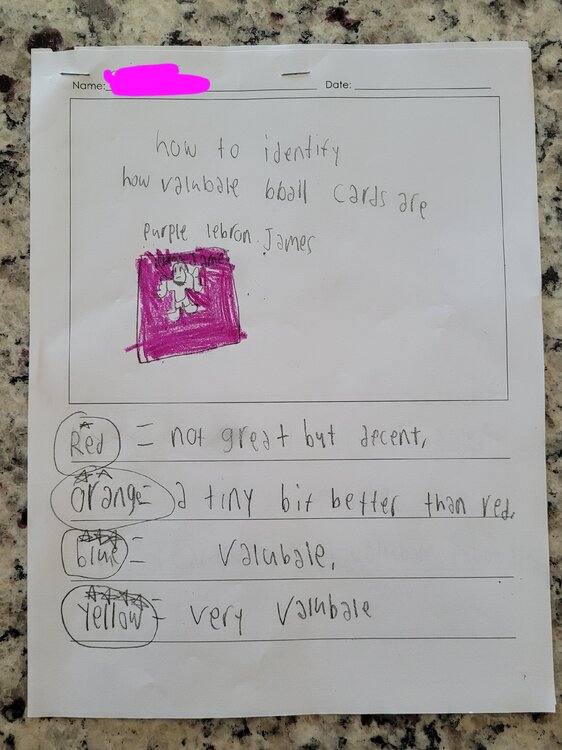 Name: Date:
how to identify
how valubale bball cards are
purple lebron James
James
Red = not great but decent,
orange = a tiny bit better than red.
blue = valubale,
yellow = very valubale